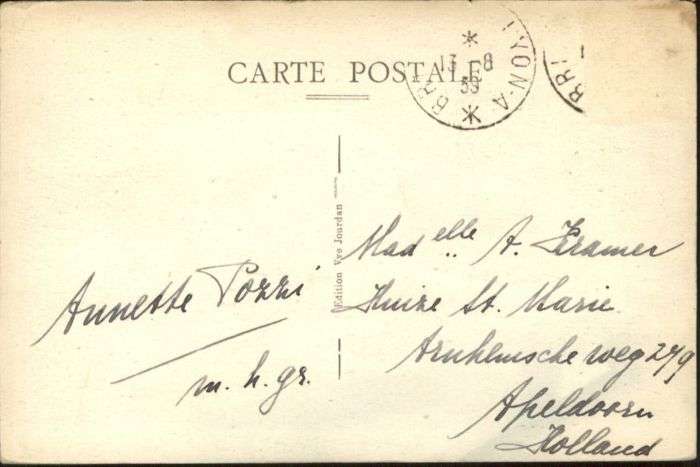 CARTE POSTALE
13-8
39
Edition Vve Jourdan
Annette Pozzi
m. h. gr.
Madelle A. Kramer
Huize St. Marie
Arnhemsche weg 279
Apeldoorn
Holland